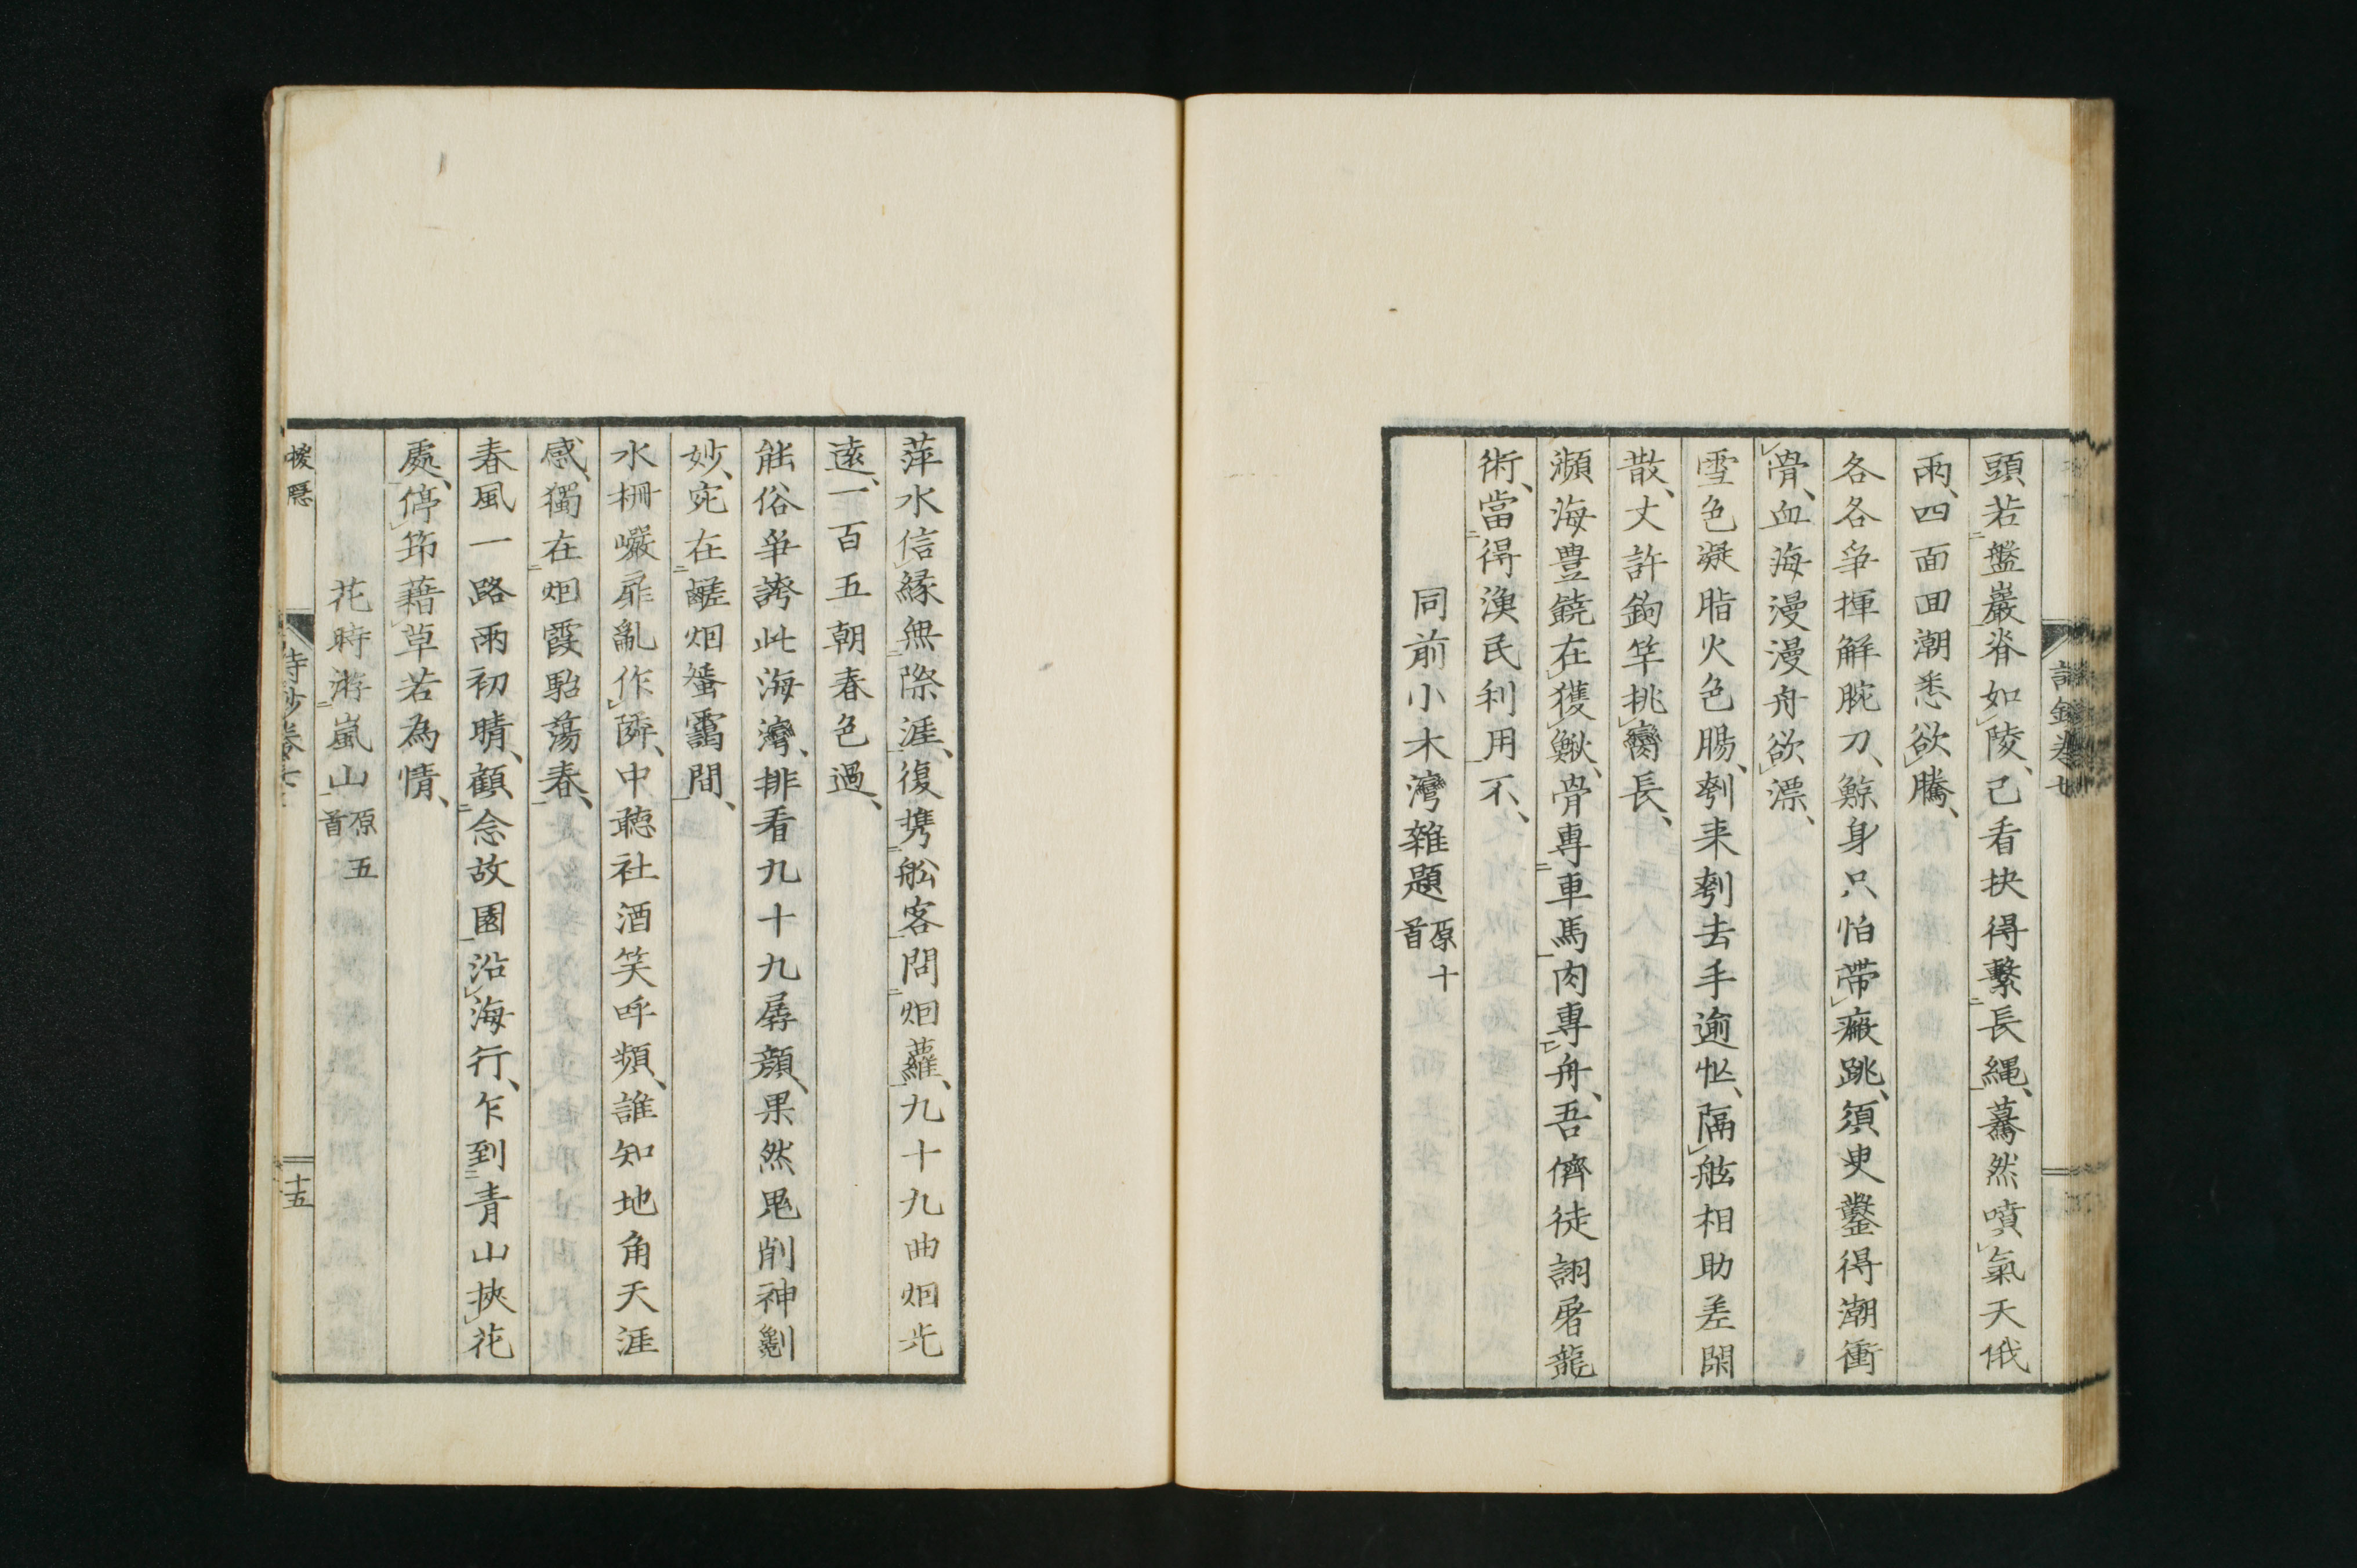 頭若盤巖脊如陵、己看抉得繫長縄、驀然噴氣天俄
雨、四面回潮悉欲騰、
各各爭揮解腕刀、鯨身只怕帶瘢跳、須臾鑿得潮衝
骨、血海漫漫舟欲漂、
雪色凝脂火色腸、刳来刳去手逾忙、隔舷相助差閑
散、丈許鉤竿挑臠長、
瀕海豊饒在獲鰍、骨專車馬肉專舟、吾儕徒詡屠龍
術、當得漁民利用不、
同前小木灣雜題原十首
萍水信緣無際涯、復携舩客問烟蘿、九十九曲烟光
遠、一百五朝春色過、
能俗爭誇此海灣、排看九十九孱顏、果然鬼削神劖
妙、宛在鹺烟蜑靄間、
水柵嚴扉亂作隣、中聽社酒笑呼頻、誰知地角天涯
感、獨在烟霞駘蕩春、
春風一路雨初晴、顧念故園沿海行、乍到青山挾花
處、停筇藉草若為情、
花時游嵐山原五首
詩鈔卷七
十五